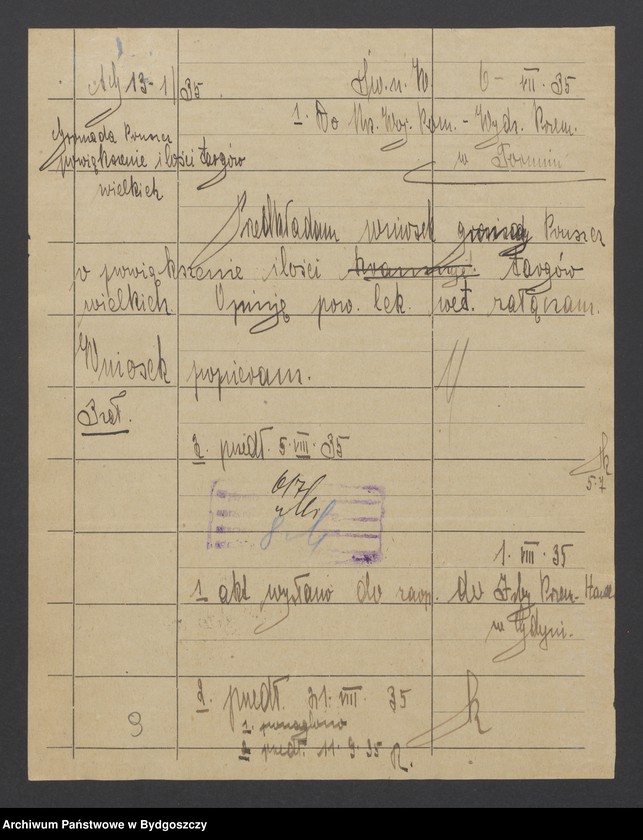 13-1/35
Św. n. W 6- VII. 35
Gromada Pruszcz
powiększenie ilości targów
wielkich
1. Do Urz. Woj. Pom. - Wydz. Przem.
w Toruniu
Przedkładam wniosek gromady Pruszcz
o powiększenie ilości targów
wielkich. Opinję pow. lek. wet. załączam.
Wniosek popieram.
1 zał.
2. przedł. 5. VIII. 35
5.7
1. VIII. 35
1 akt wysłano do zaop. do Izby Przem. Handl.
w Gdyni.
2. przedł. 31. VIII. 35
1. ponaglono
2. przedł. 11. 9. 35
9
Archiwum Państwowe w Bydgoszczy